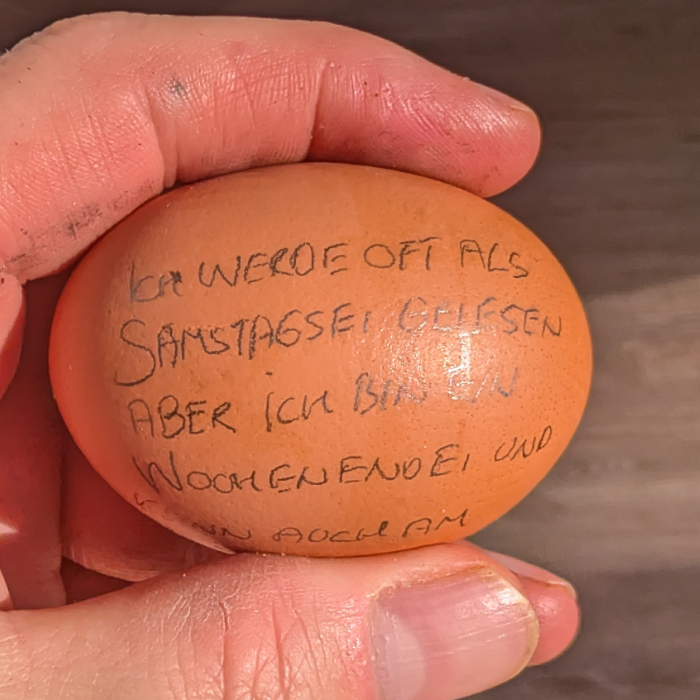 ICH WERDE OFT ALS
SAMSTAGSEI GELESEN
ABER ICH BIN EIN
WOCHENENDEI UND
KANN AUCH AM